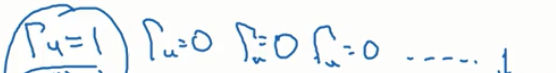 Γu=1 Γu=0 Γu=0 Γu=0 -----